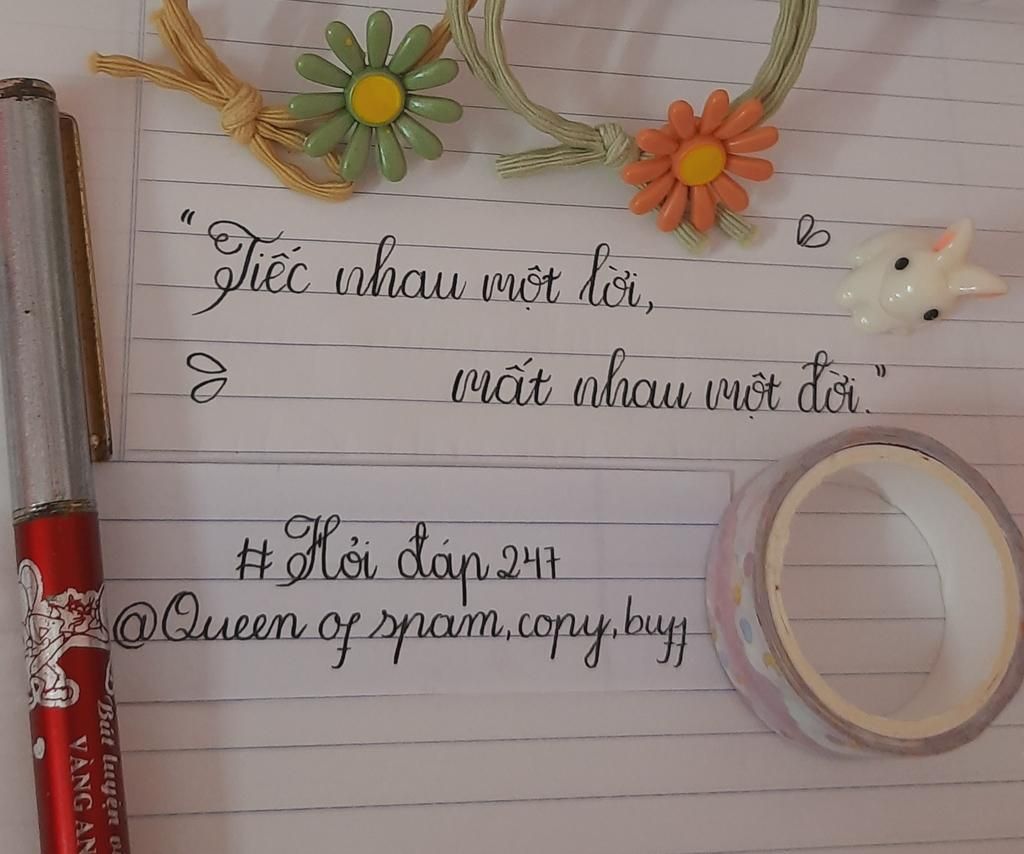 “Tiếc nhau một lời,
mất nhau một đời.”
# Hỏi đáp 247
@Queen of spam, copy, buff
Bút luyện
VÀNG AN